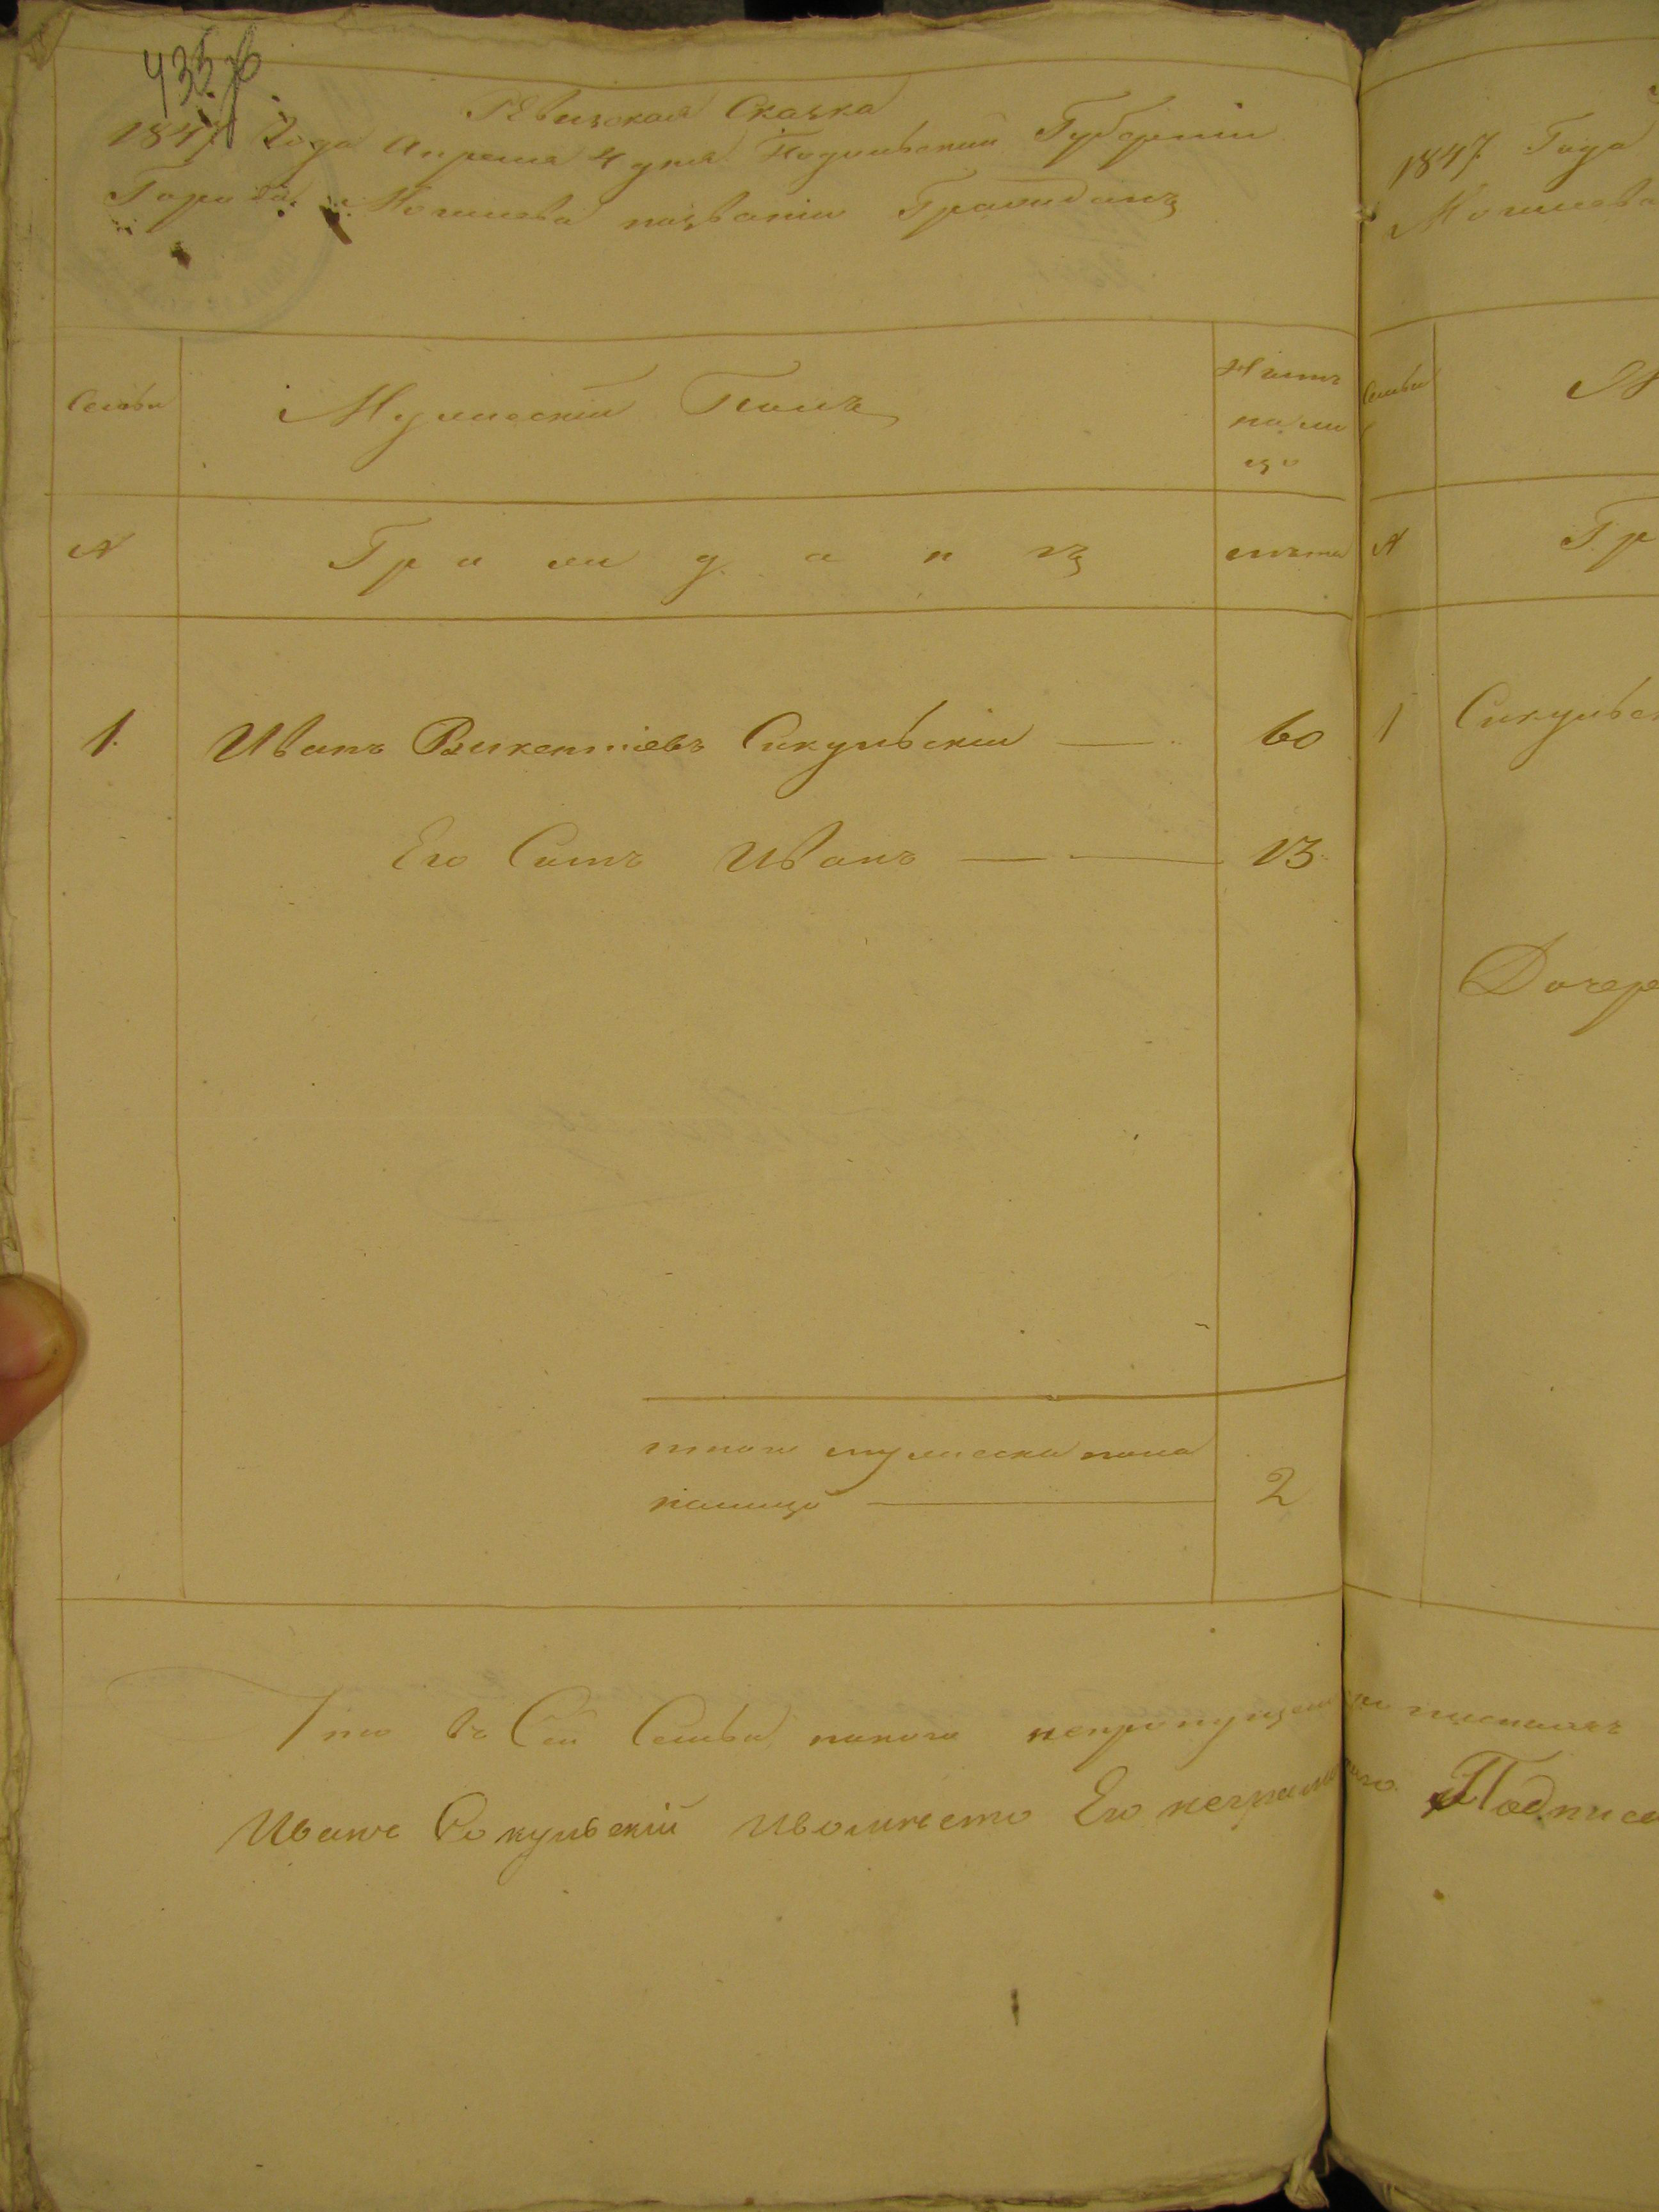 435 76
Ревизская Сказка
1847 Года Апреля 4 дня Подильский Губернии
Города Могилева названiи Гражданъ
Семьи
Мужескiй Полъ
на ли
цо
№
Г р а ж д а н ъ
лѣта
1. Иванъ Викентiевъ Сикульскiй — 60
Его Сынъ Иванъ — — 13
итого мужеска пола
налицо — 2
Что въ Сей Семьи никого непропущено
Иванъ Сокульскiй Ивомѣсто Его неграмотнаго Подписа
1847 Года
Могилева
Семьи
М
№
Гр
1 Сикульс
Дочере